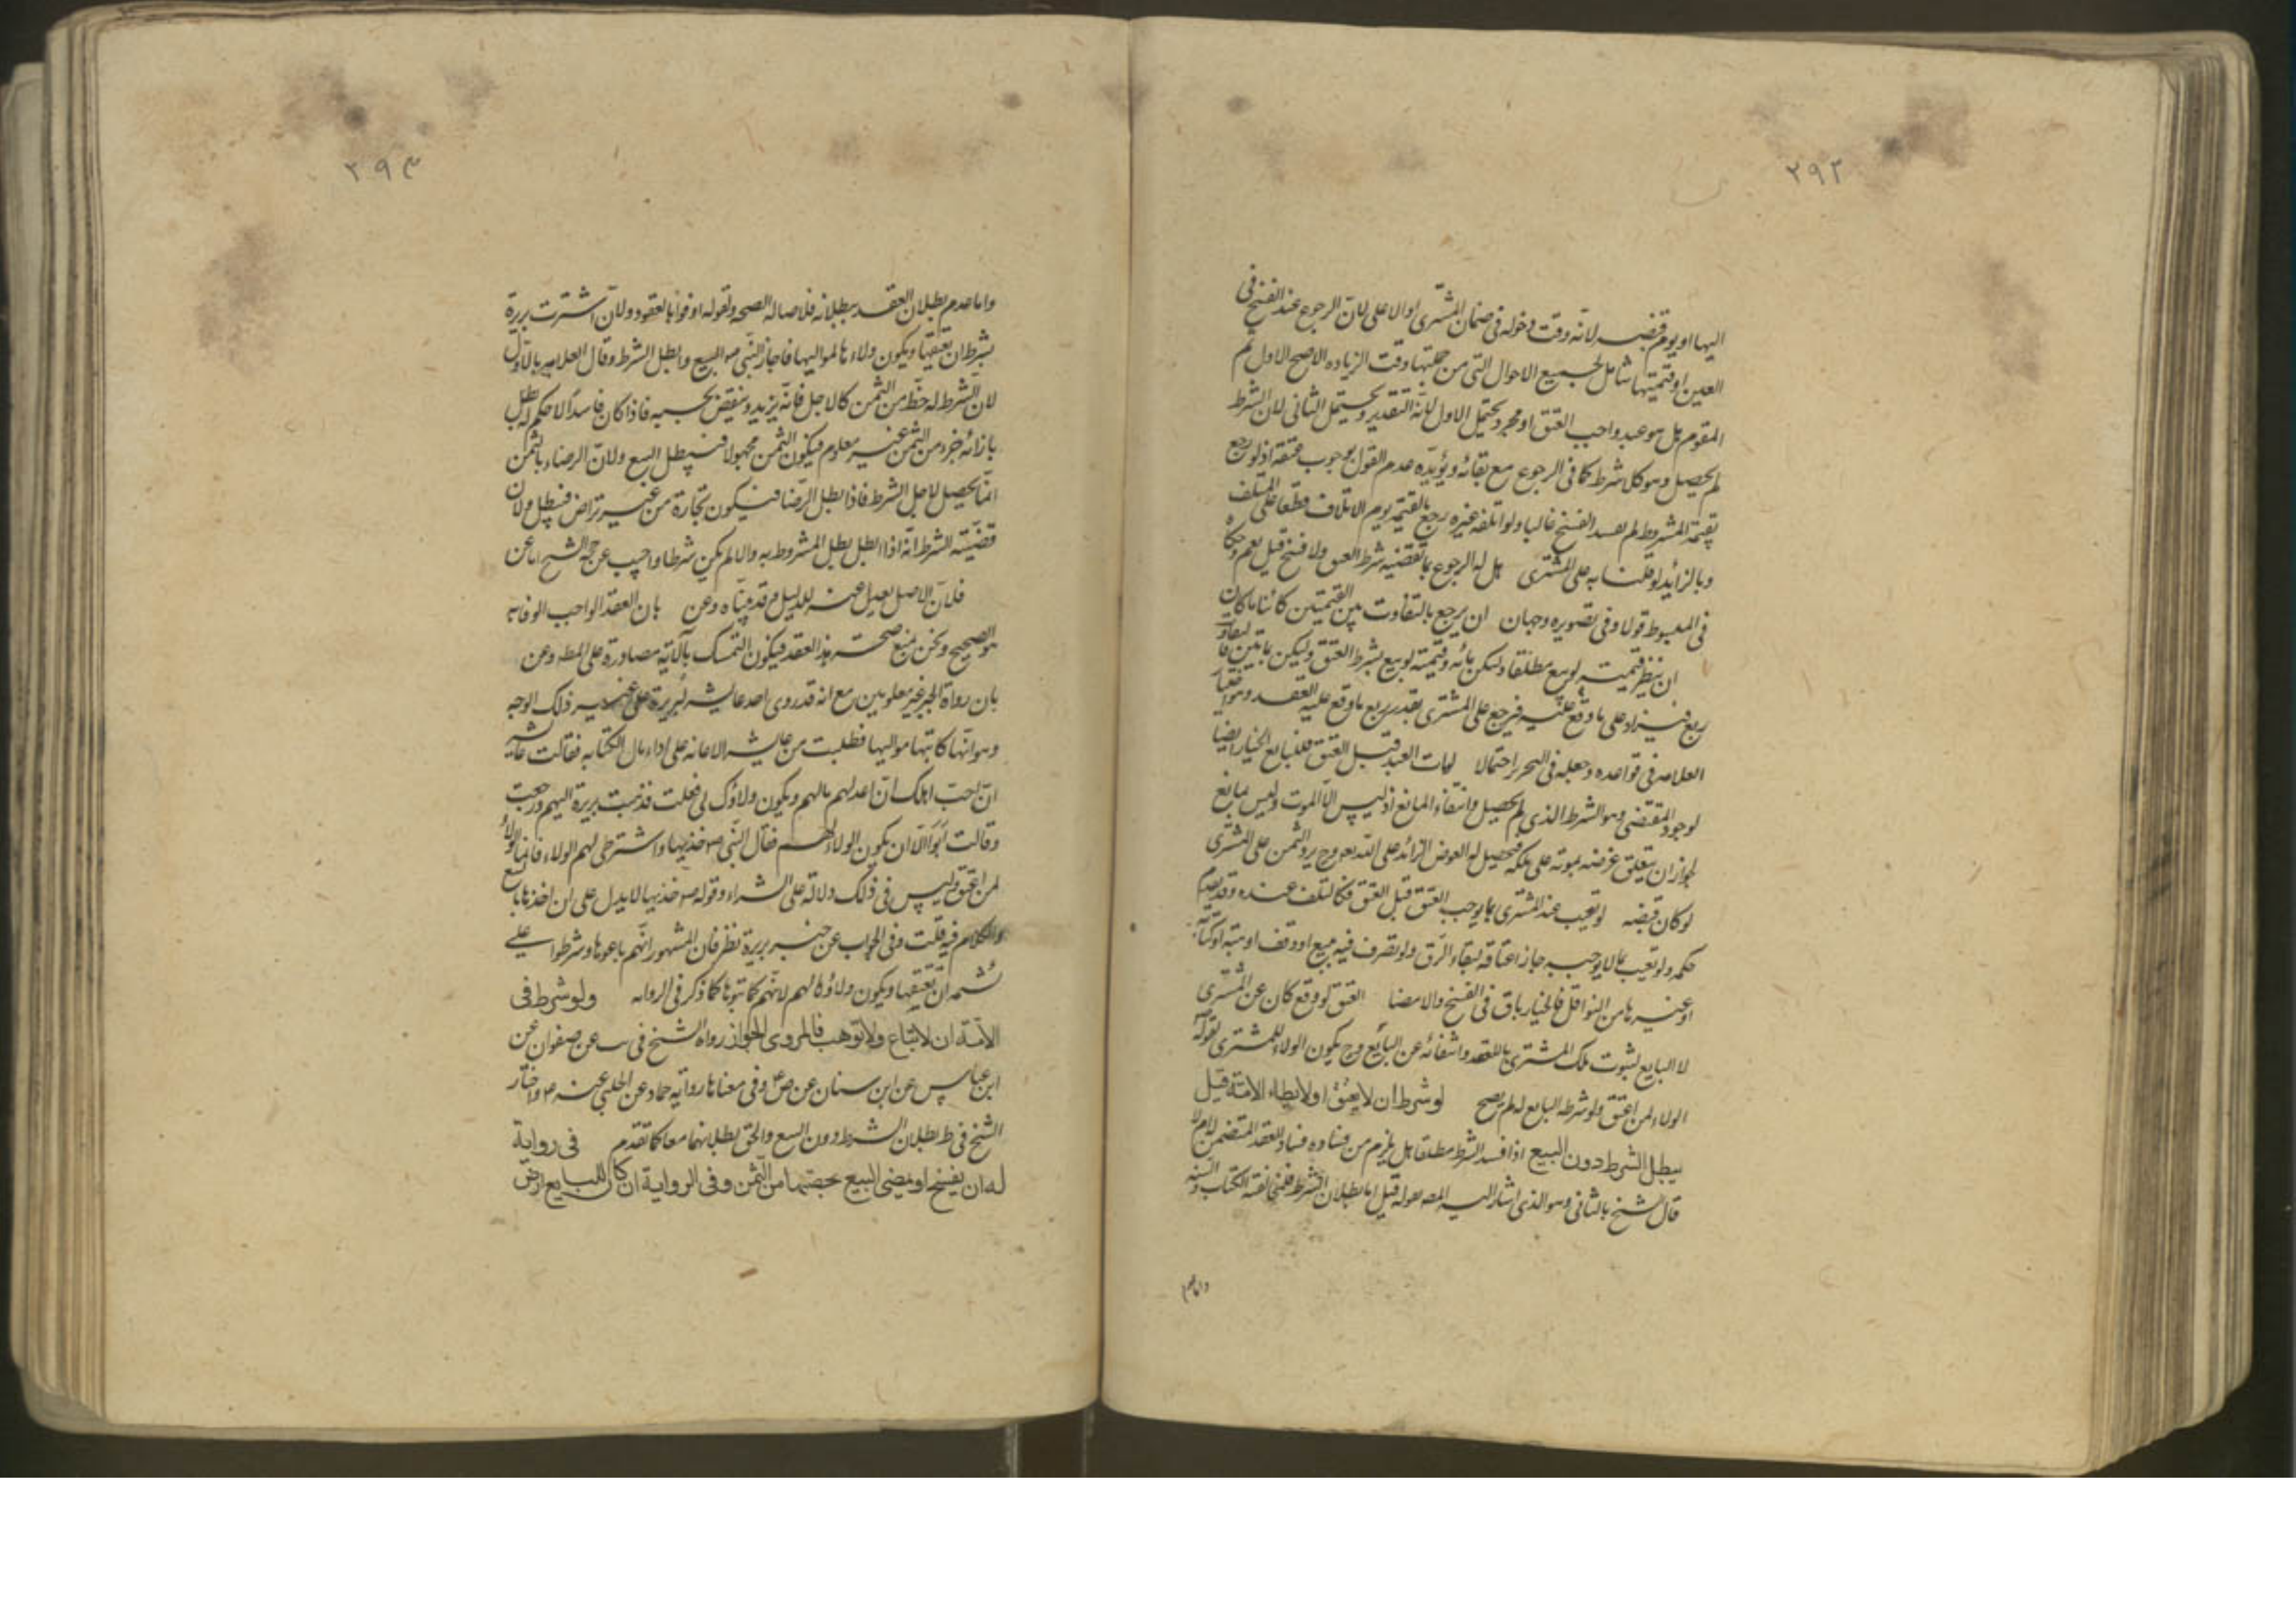 ٢٩٢
اليها او يوم قبضه لانّه وقت دخوله فى ضمان المشترى او الاعلى لانّ الرجوع عند الفسخ فى
العين او قيمتها شامل لجميع الاحوال التى من جملتها وقت الزياده الاصح الاول ثم
المقوم هل هو عبد واجب العتق او مجرد يحتمل الاول لانّه التقدير ويحتمل الثانى لان الشرط
لم يحصل وهو كل شرط كما فى الرجوع مع بقائه ويؤيّده عدم القول بوجوب عتقه اذ لو رجع
بقيمة المشروط لم يفسد الفسخ غالبا ولو اتلفه غيره رجع بالقيمة يوم الاتلاف قطعا على المتلف
وبالزائد لو قلنا به على المشترى هل له الرجوع بما يقتضيه شرط العتق ولا فسخ قيل نعم وحكاه
فى المبسوط قولا وفى تصويره وجهان ان يرجع بالتفاوت بين القيمتين كائنا ما كان
ان ينظر قيمته لو بيع مطلقا وليكن مائه وقيمته لو بيع بشرط العتق وليكن
ربع فيزاد على ما وقع عليه فيرجع على المشترى بقدر ربع ما وقع عليه العقد وهو اختيار
العلامه فى قواعده وجعله فى التحرير احتمالا لو مات العبد قبل العتق فللبايع الخيار ايضا
لوجود المقتضى وهو الشرط الذى لم يحصل وانتفاء المانع اذ ليس الّا الموت وليس بمانع
لجواز ان يتعلق غرضه بموته على ملكه فيحصل له العوض الزائد على الله تع وح يرد الثمن على المشترى
لو كان قبضه لو تعيب عند المشترى بما يوجب العتق قبل العتق فكالتلف عنده وقد تقدم
حكمه ولو تعيب بما لا يوجبه جاز اعتاقه لبقاء الرّق ولو تصرف فيه ببيع او وقف او هبة او كتابة
او غيرها من النواقل فالخيار باق فى الفسخ والامضا العتق لو وقع كان عن المشترى
لا البايع لثبوت ملك المشترى بالعقد وانتفائه عن البايع وح يكون الولاء للمشترى لقوله
الولاء لمن اعتق ولو شرطه البايع له لم يصح لو شرط ان لا يعتق او لا يطاء الامة قيل
يبطل الشرط دون البيع اذا فسد الشرط مطلقا هل يلزم من فساده فساد العقد المتضمن له ام لا
قال الشيخ بالثانى وهو الذى اشار اليه المص بقوله قيل اما بطلان الشرط فلمخالفته الكتاب والسنه
واما عدم
٢٩٣
واما عدم بطلان العقد ببطلانه فلاصالة الصحه ولقوله اوفوا بالعقود ولانّ اشترت بريرة
بشرط ان تعتقها ويكون ولاءها لمواليها فاجاز النّبى ص البيع وابطل الشرط وقال العلامه بالاوّل
لانّ الشرط له حظّ من الثمن كالاجل فانه يزيد وينقص بحسبه فاذا كان فاسدًا لا حكم له بطل
بازائه جزء من الثمن غير معلوم فيكون الثمن مجهولا فيبطل البيع ولانّ الرضاء بالثمن
انما يحصل لاجل الشرط فاذا بطل الرّضا فيكون تجارة من غير تراض فيبطل ولان
قضيّته الشرط انّه اذا بطل بطل المشروط به والا لم يكن شرطا واجيب عن حجة الشيخ اما عن
فلانّ الاصل يعدل عنه للدليل وقد بيّناه وعن بان العقد الواجب الوفاء به
هو الصحيح ونحن نمنع صحته هذا العقد فيكون التمسك بالآية مصادرة على المط وعن
بان رواة الخبر غير معلومين مع انه قد روى احد عايشه لبريرة على غير ذلك الوجه
وهو انّها كاتبها مواليها فطلبت من عايشه الاعانه على اداء مال الكتابه فقالت عائشه
ان احبّ اهلك ان اعد لهم مالهم ويكون ولاؤك لى فعلت فذهبت بريرة اليهم ورجعت
وقالت ابوا الّا ان يكون الولاء لهم فقال النّبى ص خذيها واشترطى لهم الولاء فانما الولاء
لمن اعتق وليس فى ذلك دلالة على الشراء وقوله ص خذيها لا يدل على ان اخذها بالبيع
والكلام فيه قلت وفى الجواب عن خبر بريرة نظر فان المشهور انهم باعوها وشرطوا على
ان تعتقها ويكون ولاؤها لهم لانهم كاتبوها كما ذكر فى الروايه ولو شرط فى
الامة ان لا تباع ولا توهب فالمروى الجواز رواه الشيخ فى عن صفوان عن
ابن عباس عن ابن سنان عن ص ع وفى معناها رواية حماد عن الحلبى عنه ع واختار
الشيخ فى ط بطلان الشرط دون البيع والحق بطلانهما معا كما تقدم فى رواية
له ان يفسخ او يمضى البيع بحصتها من الثمن وفى الرواية ان كان للبايع ارض